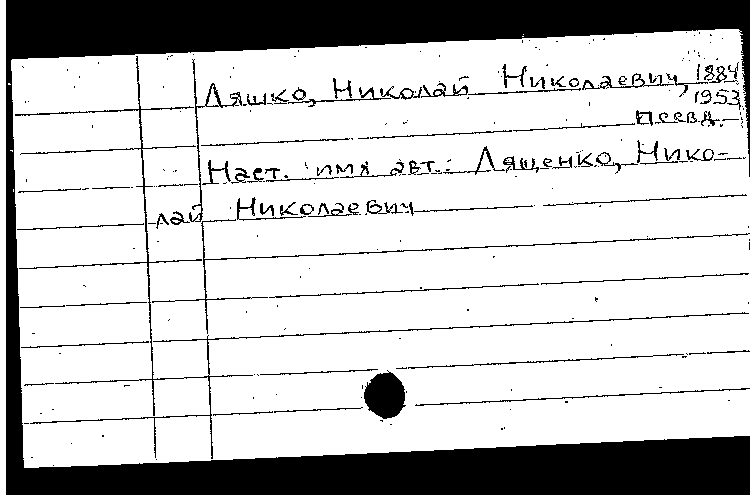 Ляшко, Николай Николаевич, 1884
1953
псевд.
Наст. имя авт.: Лященко, Нико-
лай Николаевич